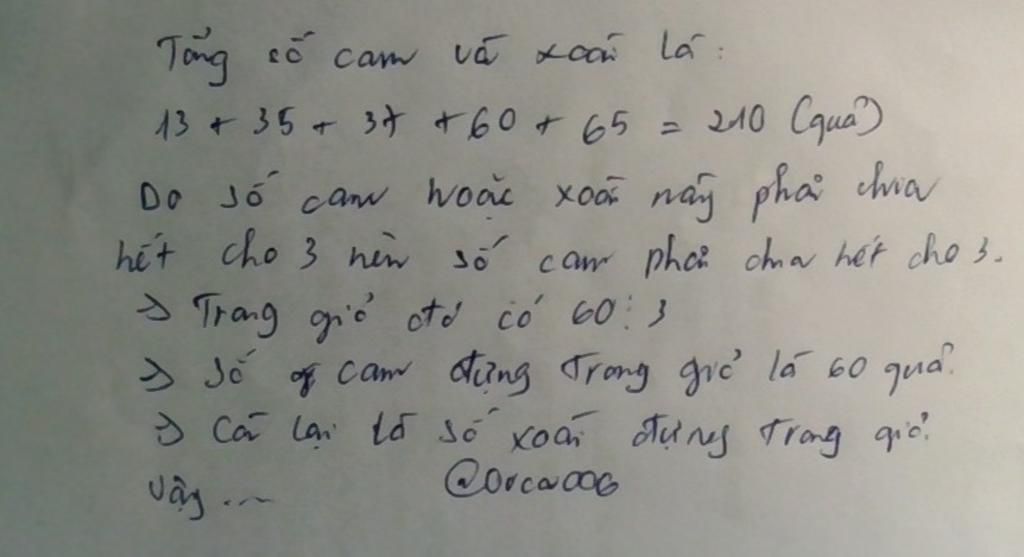 Tổng số cam và xoài là:
13 + 35 + 37 + 60 + 65 = 210 (quả)
Do số cam hoặc xoài này phải chia
hết cho 3 nên số cam phải chia hết cho 3.
=> Trong giỏ đó có 60 : 3
=> Số cam đựng trong giỏ là 60 quả.
=> Còn lại là số xoài đựng trong giỏ.
Vậy ...
@Orca006